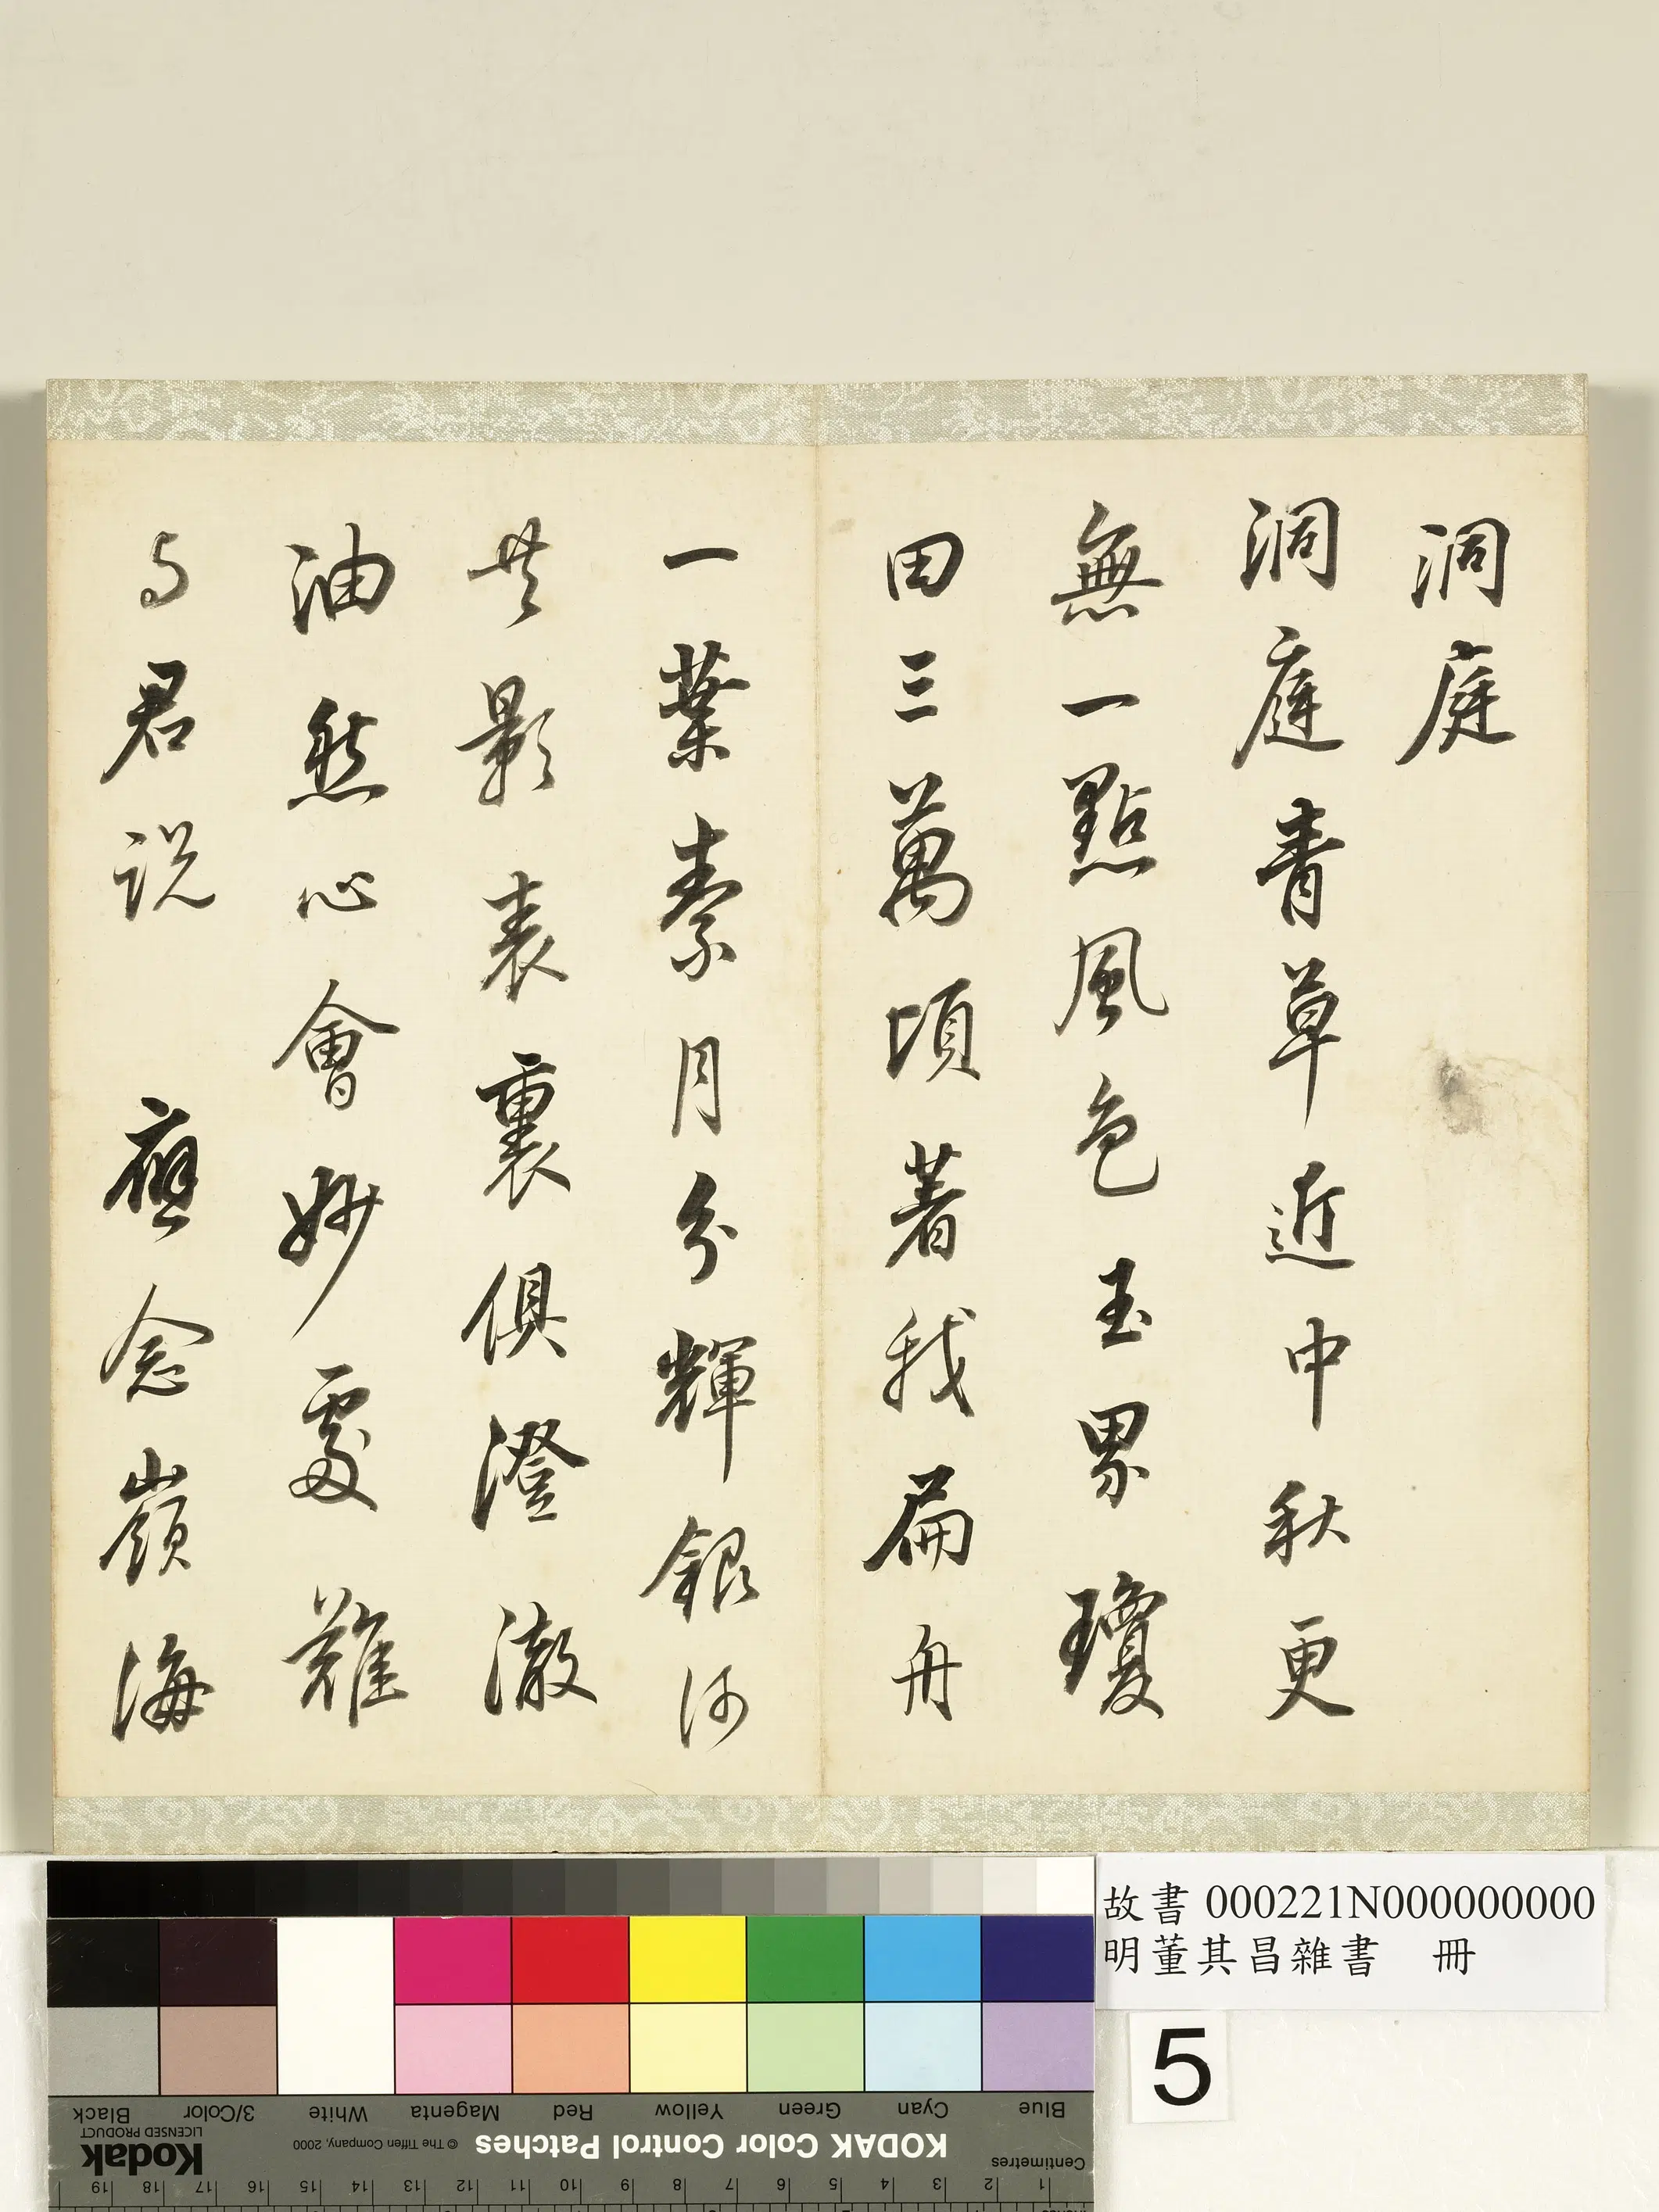 洞庭
洞庭青草近中秋更
無一點風色玉界瓊
田三萬頃著我扁舟
一葉素月分輝銀河
共影表裏俱澄澈
油然心會妙處難
与君説 應念嶺海
故書 000221N000000000
明董其昌雜書 冊
5
Black 3/Color White Magenta Red Yellow Green Cyan Blue
Kodak
LICENSED PRODUCT
© The Tiffen Company, 2000
KODAK Color Control Patches
Centimetres
1 2 3 4 5 6 7 8 9 10 11 12 13 14 15 16 17 18 19